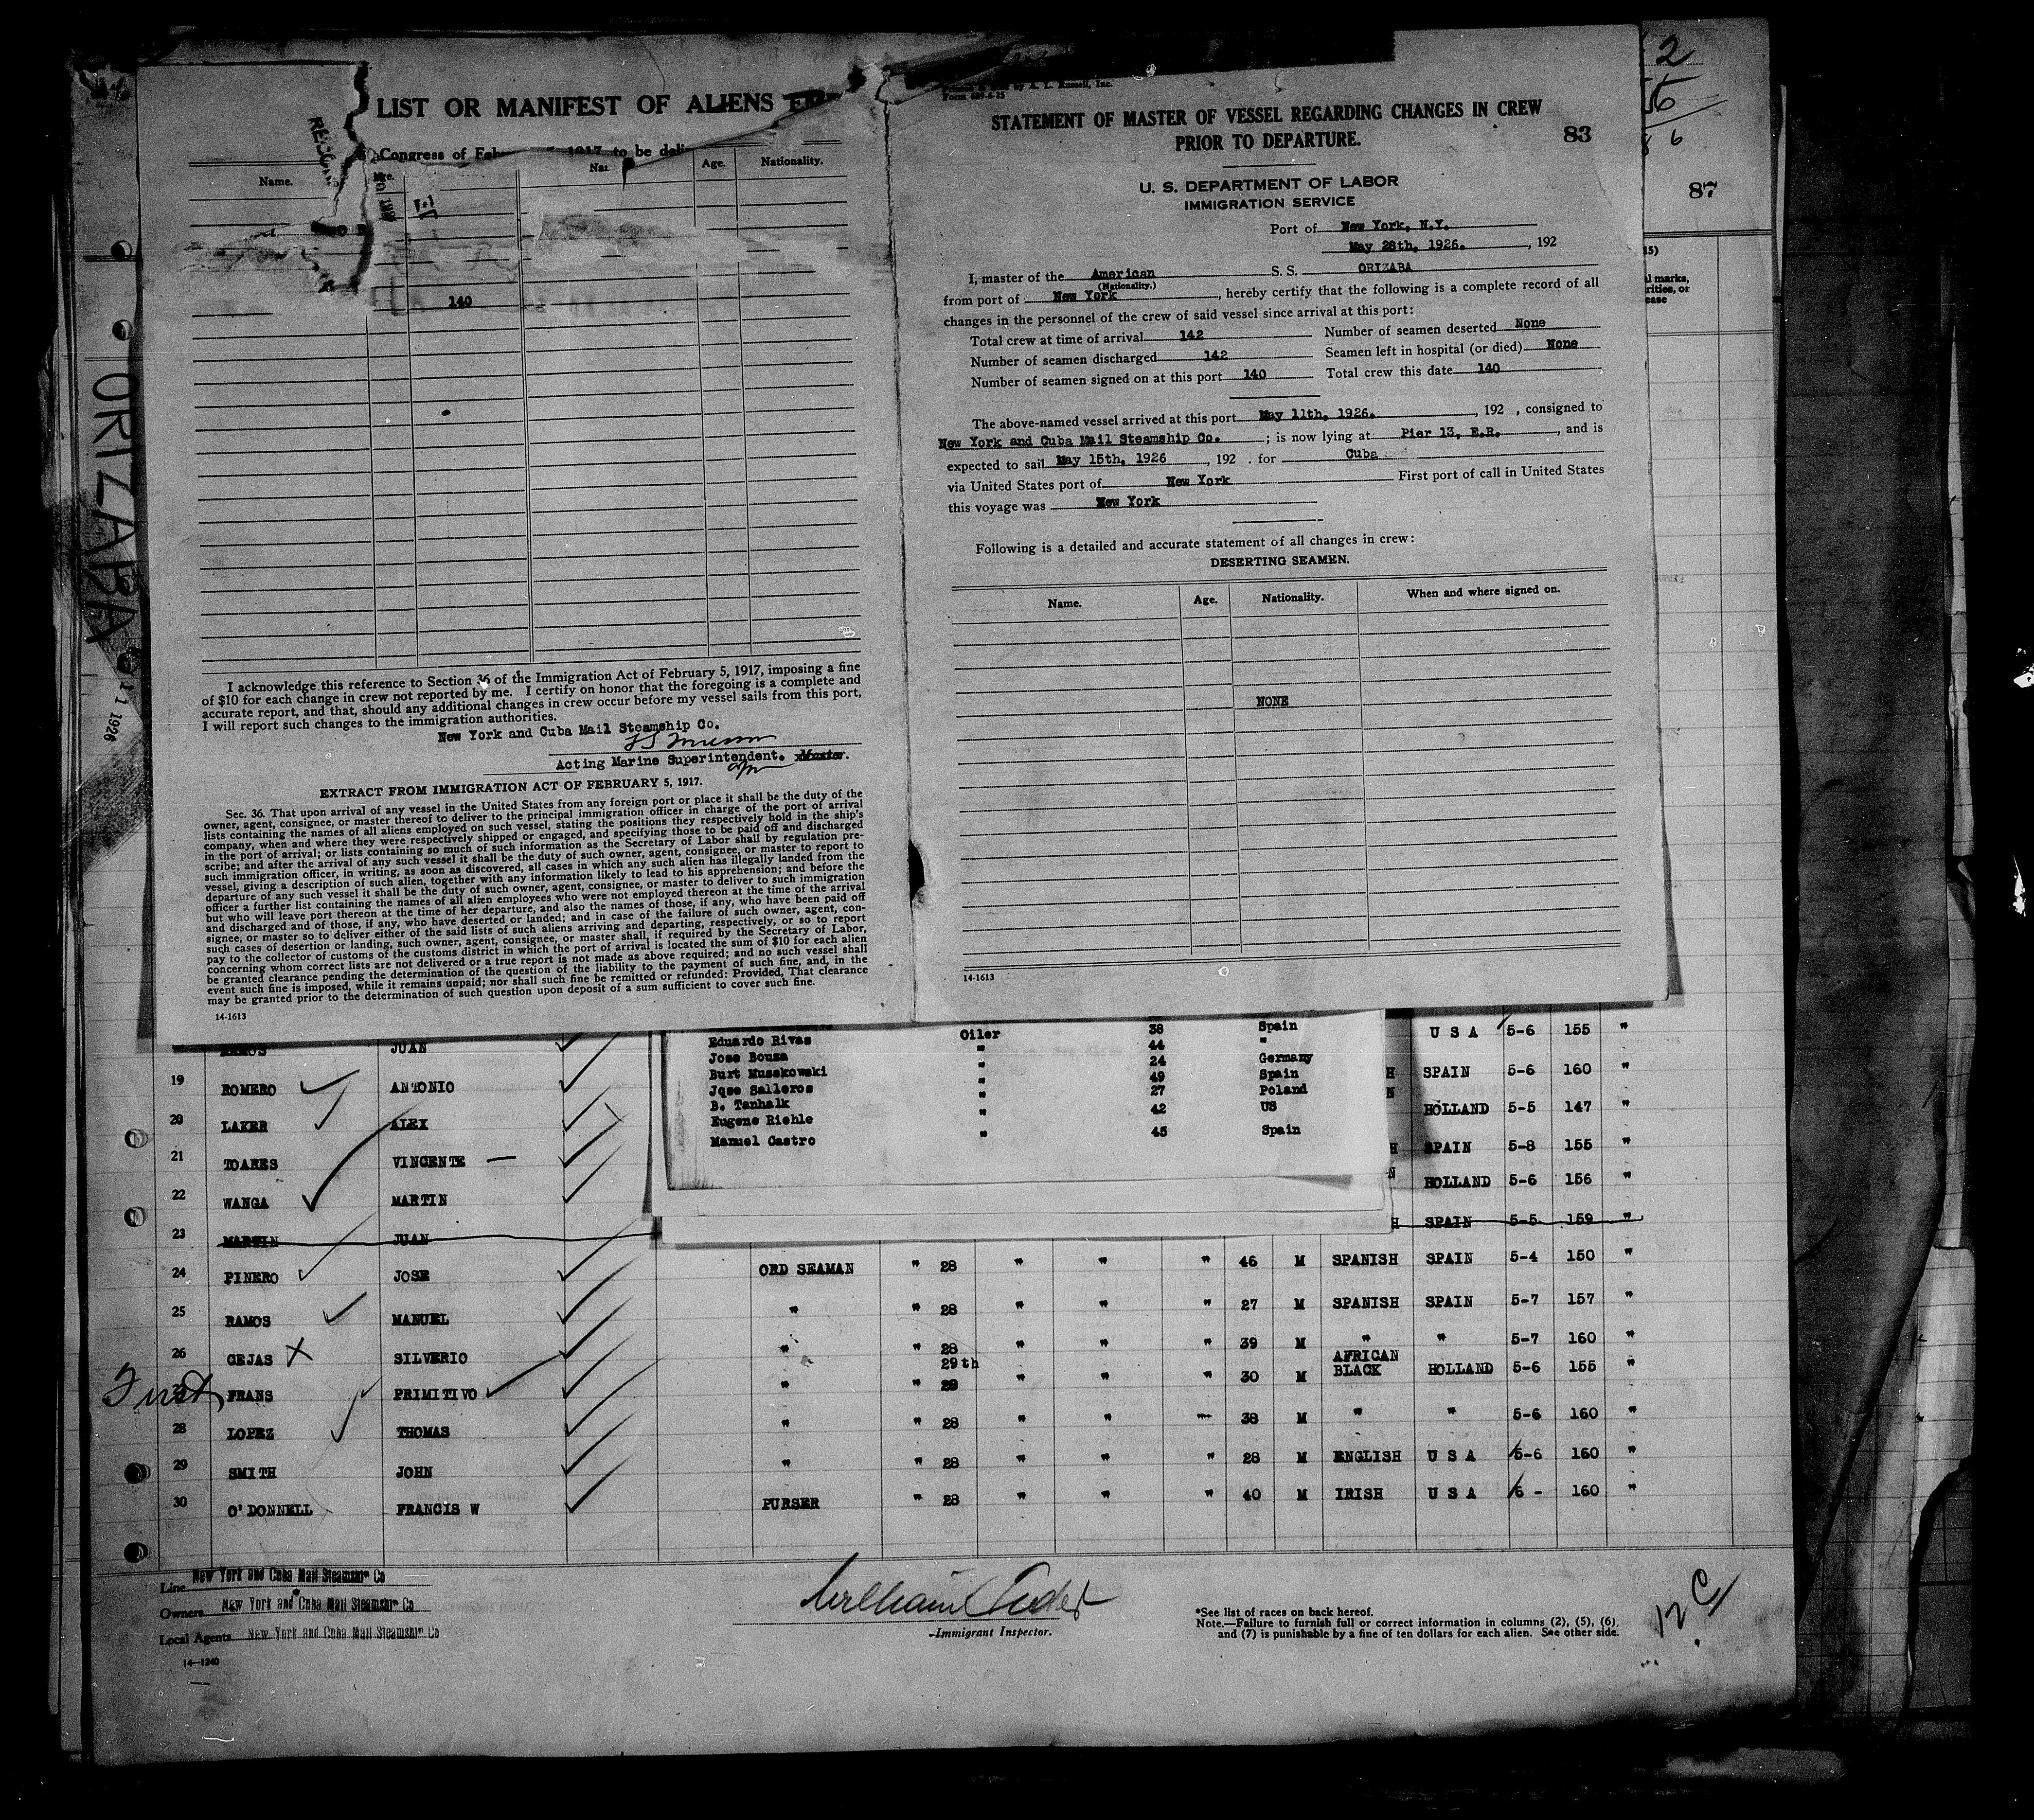 LIST OR MANIFEST OF ALIENS
Congress of
1917, to be
Name.
Age.
Nationality.
140
I acknowledge this reference to Section 36 of the Immigration Act of February 5, 1917, imposing a fine
of $10 for each change in crew not reported by me. I certify on honor that the foregoing is a complete and
accurate report, and that, should any additional changes in crew occur before my vessel sails from this port,
I will report such changes to the immigration authorities.
New York and Cuba Mail Steamship Co.
Acting Marine Superintendent. Master.
EXTRACT FROM IMMIGRATION ACT OF FEBRUARY 5, 1917.
Sec. 36. That upon arrival of any vessel in the United States from any foreign port or place it shall be the duty of the
owner, agent, consignee, or master thereof to deliver to the principal immigration officer in charge of the port of arrival
lists containing the names of all aliens employed on such vessel, stating the positions they respectively hold in the ship's
company, when and where they were respectively shipped or engaged, and specifying those to be paid off and discharged
in the port of arrival; or lists containing so much of such information as the Secretary of Labor shall by regulation pre-
scribe; and after the arrival of any such vessel it shall be the duty of such owner, agent, consignee, or master to report to
such immigration officer, in writing, as soon as discovered, all cases in which any such alien has illegally landed from the
vessel, giving a description of such alien, together with any information likely to lead to his apprehension; and before the
departure of any such vessel it shall be the duty of such owner, agent, consignee, or master to deliver to such immigration
officer a further list containing the names of all alien employees who were not employed thereon at the time of the arrival
but who will leave port thereon at the time of her departure, and also the names of those, if any, who have been paid off
and discharged and of those, if any, who have deserted or landed; and in case of the failure of such owner, agent, con-
signee, or master so to deliver either of the said lists of such aliens arriving and departing, respectively, or so to report
such cases of desertion or landing, such owner, agent, consignee, or master shall, if required by the Secretary of Labor,
pay to the collector of customs of the customs district in which the port of arrival is located the sum of $10 for each alien
concerning whom correct lists are not delivered or a true report is not made as above required; and no such vessel shall
be granted clearance pending the determination of the question of the liability to the payment of such fine, and, in the
event such fine is imposed, while it remains unpaid; nor shall such fine be remitted or refunded: Provided, That clearance
may be granted prior to the determination of such question upon deposit of a sum sufficient to cover such fine.
14-1613
by A. L. Russell, Inc.
STATEMENT OF MASTER OF VESSEL REGARDING CHANGES IN CREW
PRIOR TO DEPARTURE.
83
U. S. DEPARTMENT OF LABOR
IMMIGRATION SERVICE
Port of New York, N.Y.
May 28th, 1926. , 192
I, master of the American S. S. ORIZABA
(Nationality.)
from port of New York , hereby certify that the following is a complete record of all
changes in the personnel of the crew of said vessel since arrival at this port:
Total crew at time of arrival 142 Number of seamen deserted None
Number of seamen discharged 142 Seamen left in hospital (or died) None
Number of seamen signed on at this port 140 Total crew this date 140
The above-named vessel arrived at this port May 11th, 1926. , 192 , consigned to
New York and Cuba Mail Steamship Co. ; is now lying at Pier 13, E.R. , and is
expected to sail May 15th, 1926 , 192 . for Cuba
via United States port of New York First port of call in United States
this voyage was New York
Following is a detailed and accurate statement of all changes in crew:
DESERTING SEAMEN.
Name. Age. Nationality. When and where signed on.
NONE
14-1613
2
87
ORIZABA
11 1926
Oiler 38 Spain
Eduardo Rivas " 44 "
Jose Bouza " 24 Germany
Burt Musskowski " 49 Spain
Jqse Salleros " 27 Poland
B. Tanhalk " 42 US
Eugene Riehle
Manuel Castro " 45 Spain
JUAN U S A 5-6 155 "
19 ROMERO ANTONIO H SPAIN 5-6 160 "
20 LAKER ALEX N HOLLAND 5-5 147 "
21 TOARES VINCENTE H SPAIN 5-8 155 "
22 WANGA MARTIN N HOLLAND 5-6 156 "
23 MARTIN JUAN H SPAIN 5-5 159 "
24 PINERO JOSE ORD SEAMAN " 28 " " " 46 M SPANISH SPAIN 5-4 150 "
25 RAMOS MANUEL " " 28 " " " 27 M SPANISH SPAIN 5-7 157 "
26 CEJAS SILVERIO " " 28 " " " 39 M " " 5-7 160 "
First FRANS PRIMITIVO " " 29th 28 " " " 30 M AFRICAN BLACK HOLLAND 5-6 155 "
28 LOPEZ THOMAS " " 28 " " " 38 M " " 5-6 160 "
29 SMITH JOHN " " 28 " " " 28 M ENGLISH U S A 5-6 160 "
30 O'DONNELL FRANCIS W PURSER " 28 " " " 40 M IRISH U S A 6 - 160 "
Line New York and Cuba Mail Steamship Co
Owners New York and Cuba Mail Steamship Co
Local Agents New York and Cuba Mail Steamship Co
14-1240
Immigrant Inspector.
*See list of races on back hereof.
Note.—Failure to furnish full or correct information in columns (2), (5), (6),
and (7) is punishable by a fine of ten dollars for each alien. See other side.